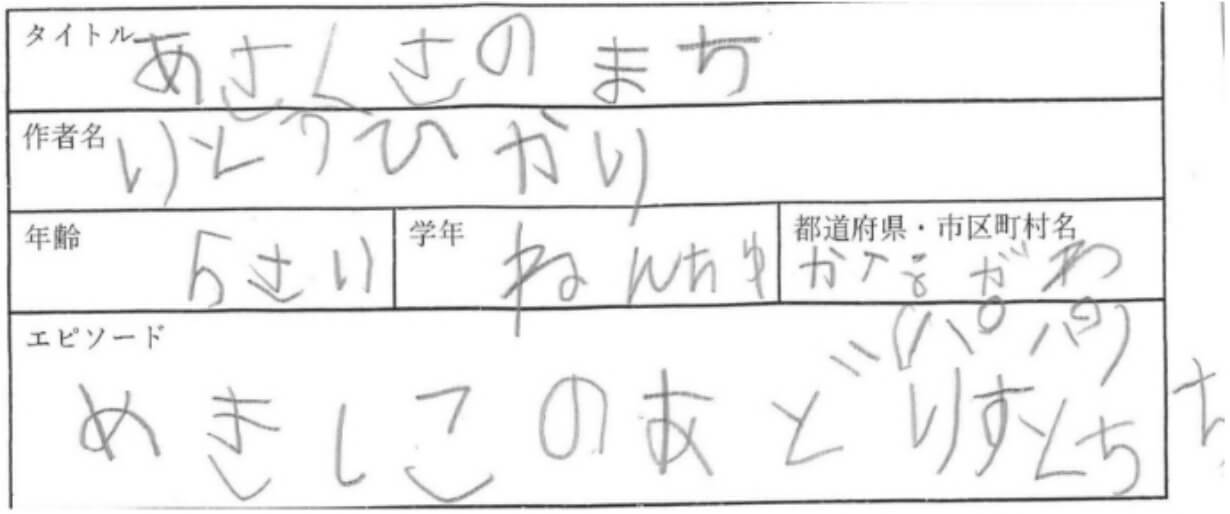 タイトル あさくさのまち
作者名 いとうひかり
年齢 5さい
学年 ねんちゅ
都道府県・市区町村名 かながわ
エピソード
(パパ)
めきしこのあどりすとち